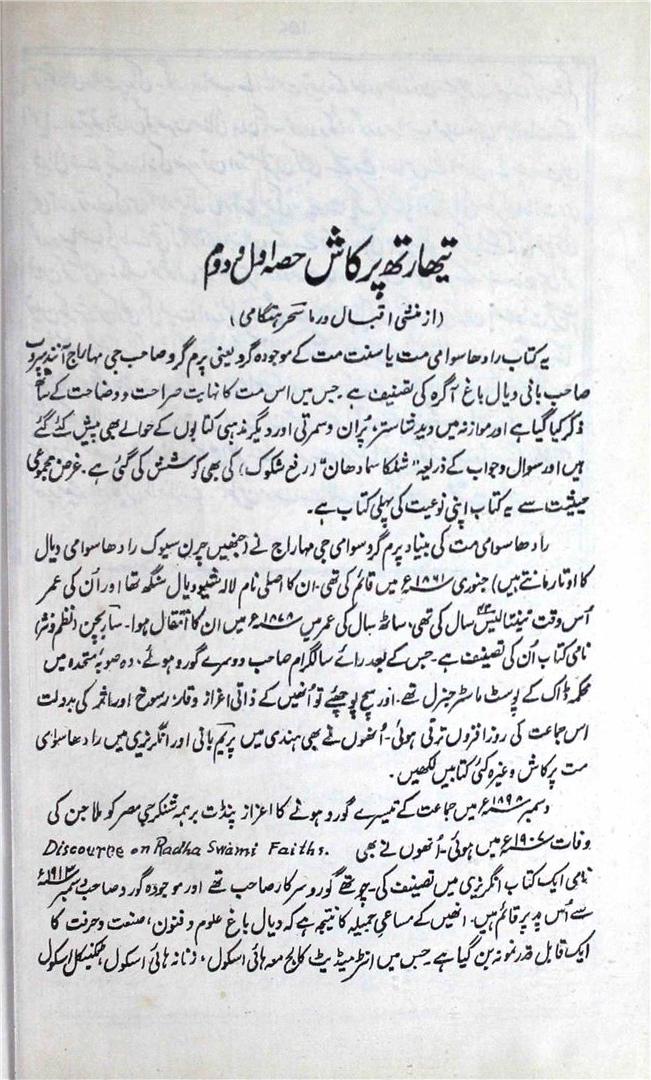 یتھارتھ پرکاش حصہ اول و دوم
(از منشی اقبال ورما سحر ہتگامی)
یہ کتاب رادھا سوامی مت یا سنت مت کے موجودہ گرو یعنی پرم گرو صاحب جی مہاراج آنند سروپ
صاحب بانی دیال باغ آگرہ کی تصنیف ہے۔ جس میں اس مت کا نہایت صراحت و وضاحت کے ساتھ
ذکر کیا گیا ہے اور موازنہ میں وید شاستر، پُران و سمرتی اور دیگر مذہبی کتابوں کے حوالے بھی پیش کئے گئے
ہیں اور سوال و جواب کے ذریعہ "شنکا سمادھان" (رفع شکوک) کی بھی کوشش کی گئی ہے۔ غرض مجموعی
حیثیت سے یہ کتاب اپنی نوعیت کی پہلی کتاب ہے۔
رادھا سوامی مت کی بنیاد پرم گرو سوامی جی مہاراج نے (جنہیں چرن سیوک رادھا سوامی دیال
کا اوتار مانتے ہیں) جنوری ۱۸۶۱ء میں قائم کی تھی۔ ان کا اصلی نام لالہ شیو دیال سنگھ تھا اور اُن کی عمر
اُس وقت تینتالیس ۴۳ سال کی تھی، ساٹھ سال کی عمر میں ۱۸۷۸ء میں ان کا انتقال ہوا۔ سار بچن (نظم و نثر)
نامی کتاب اُن کی تصنیف ہے۔ جس کے بعد رائے سالگرام صاحب دوسرے گورو ہوئے، وہ صوبہ متحدہ میں
محکمہ ڈاک کے پوسٹ ماسٹر جنرل تھے۔ اور سچ پوچھئے تو اُنھیں کے ذاتی اعزاز وقار، رسوخ اور اثر کی بدولت
اس جماعت کی روز افزوں ترقی ہوئی۔ اُنھوں نے بھی ہندی میں پریم بانی اور انگریزی میں رادھا سوامی
مت پرکاش وغیرہ کئی کتابیں لکھیں۔
دسمبر ۱۸۹۸ء میں جماعت کے تیسرے گورو ہونے کا اعزاز پنڈت برہمہ شنکر جی مصر کو ملا جن کی
وفات ۱۹۰۷ء میں ہوئی۔ اُنھوں نے بھی Discource on Radha Swami Faiths.
نامی ایک کتاب انگریزی میں تصنیف کی۔ چوتھے گورو سرکار صاحب تھے اور موجودہ گورو صاحب دسمبر ۱۹۱۳ء
سے اُس پد پر قائم ہیں۔ انھیں کے مساعی جمیلہ کا نتیجہ ہے کہ دیال باغ علوم و فنون، صنعت و حرفت کا
ایک قابل قدر نمونہ بن گیا ہے۔ جس میں انٹرمیڈیٹ کالج معہ ہائی اسکول، زنانہ ہائی اسکول، ٹیکنیکل اسکول